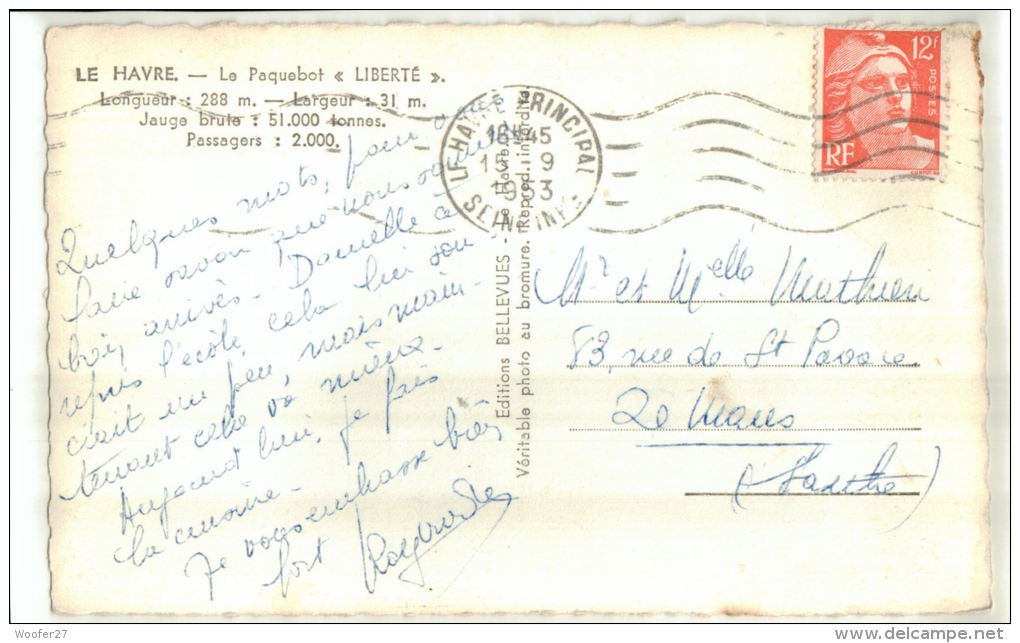 LE HAVRE. — Le Paquebot « LIBERTÉ ».
Longueur : 288 m. — Largeur : 31 m.
Jauge brute : 51.000 tonnes.
Passagers : 2.000.
Quelques mots, pour vous
faire savoir que nous sommes
bien arrivés - Danielle a
repris l'école cela lui son
ciait un peu, mais main-
tenant cela va mieux -
Aujourd'hui, je fais
la cuisine -
Je vous embrasse bien
fort Raymonde
Editions BELLEVUES - Le Havre
Véritable photo au bromure. (Reprod. interdite
LE HAVRE PRINCIPAL
16H45
9
1953
SEINE INFRE
12F
POSTES
RF
Mr et Melle Mathieu
83, rue de St Pavace
Le Mans
(Sarthe)
Woofer27
delcampe.net